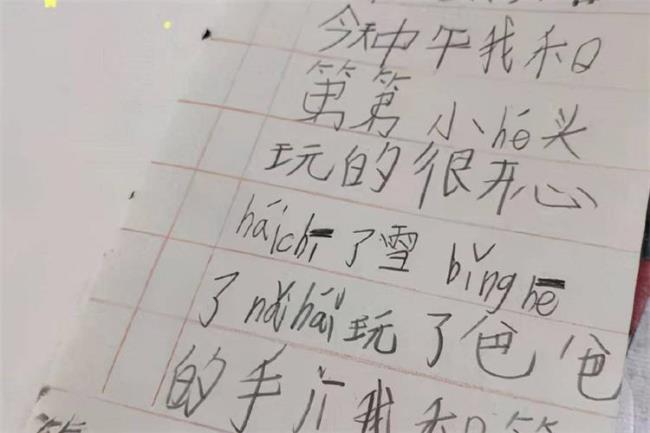 今天中午我和
第第小hé头
玩的很开心
háichī了雪bǐnghē
了nǎihái玩了爸爸
的手 我和第